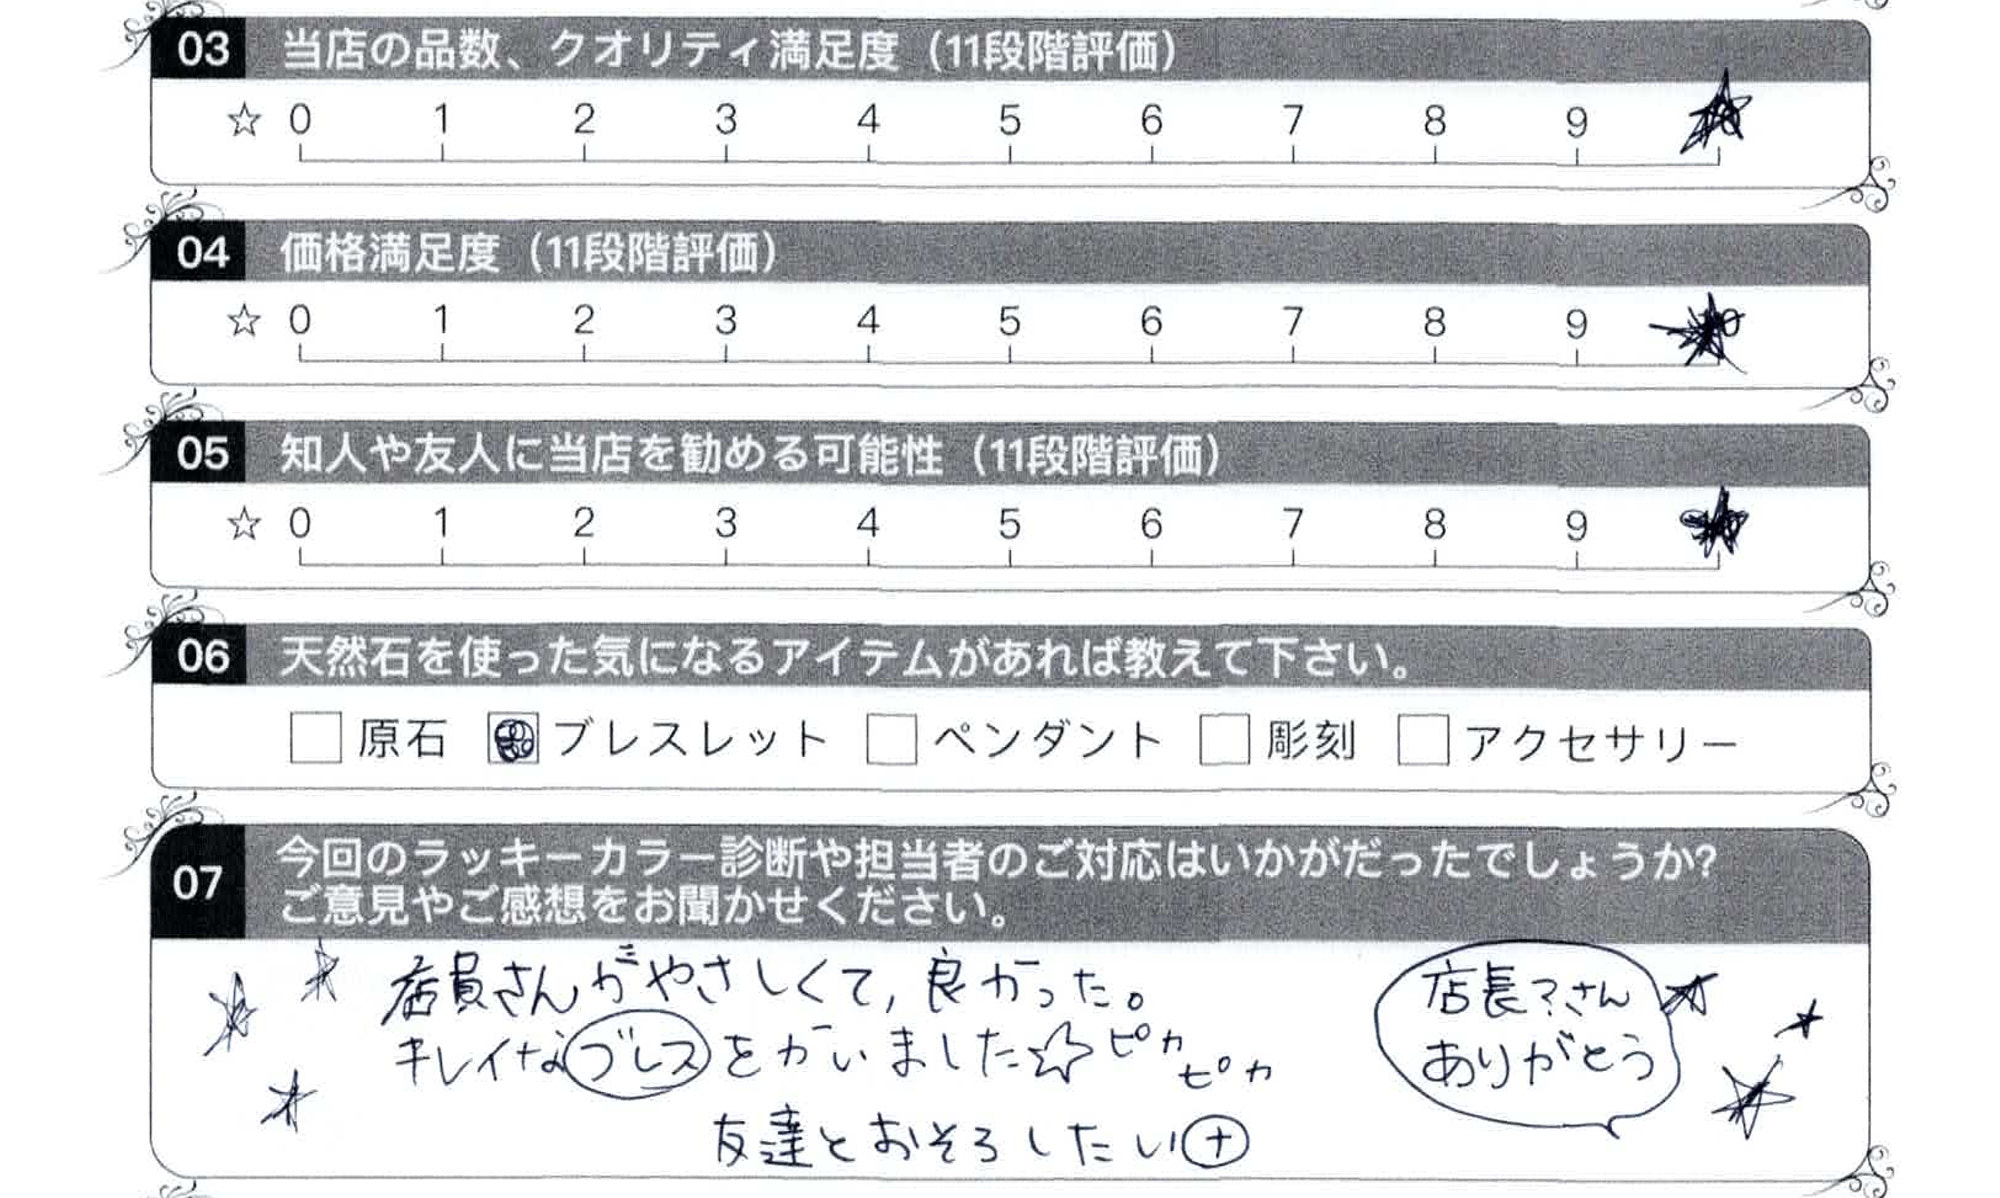 03 当店の品数、クオリティ満足度（11段階評価）
☆ 0 1 2 3 4 5 6 7 8 9
04 価格満足度（11段階評価）
☆ 0 1 2 3 4 5 6 7 8 9
05 知人や友人に当店を勧める可能性（11段階評価）
☆ 0 1 2 3 4 5 6 7 8 9
06 天然石を使った気になるアイテムがあれば教えて下さい。
原石 ブレスレット ペンダント 彫刻 アクセサリー
07 今回のラッキーカラー診断や担当者のご対応はいかがだったでしょうか?
ご意見やご感想をお聞かせください。
店員さんがやさしくて,良かった。
キレイなブレスをかいました☆ピカピカ
友達とおそろしたい
店長?さん
ありがとう